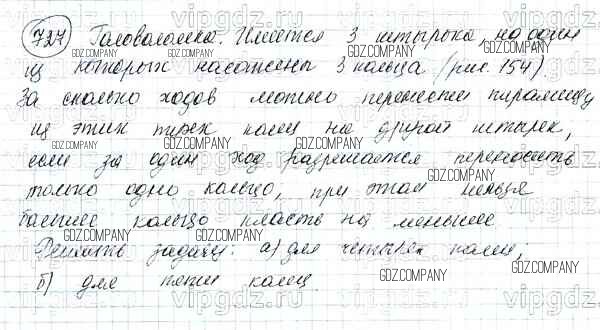 727 Головоломка. Имеется 3 штырька, на один
из которых насажены 3 кольца (рис. 154)
За сколько ходов можно перенести пирамиду
из этих трех колец на другой штырек,
если за один ход разрешается переносить
только одно кольцо, при этом нельзя
большее кольцо класть на меньшее
Решить задачу: а) для четырех колец;
б) для пяти колец.
vipgdz.com
GDZ.COMPANY